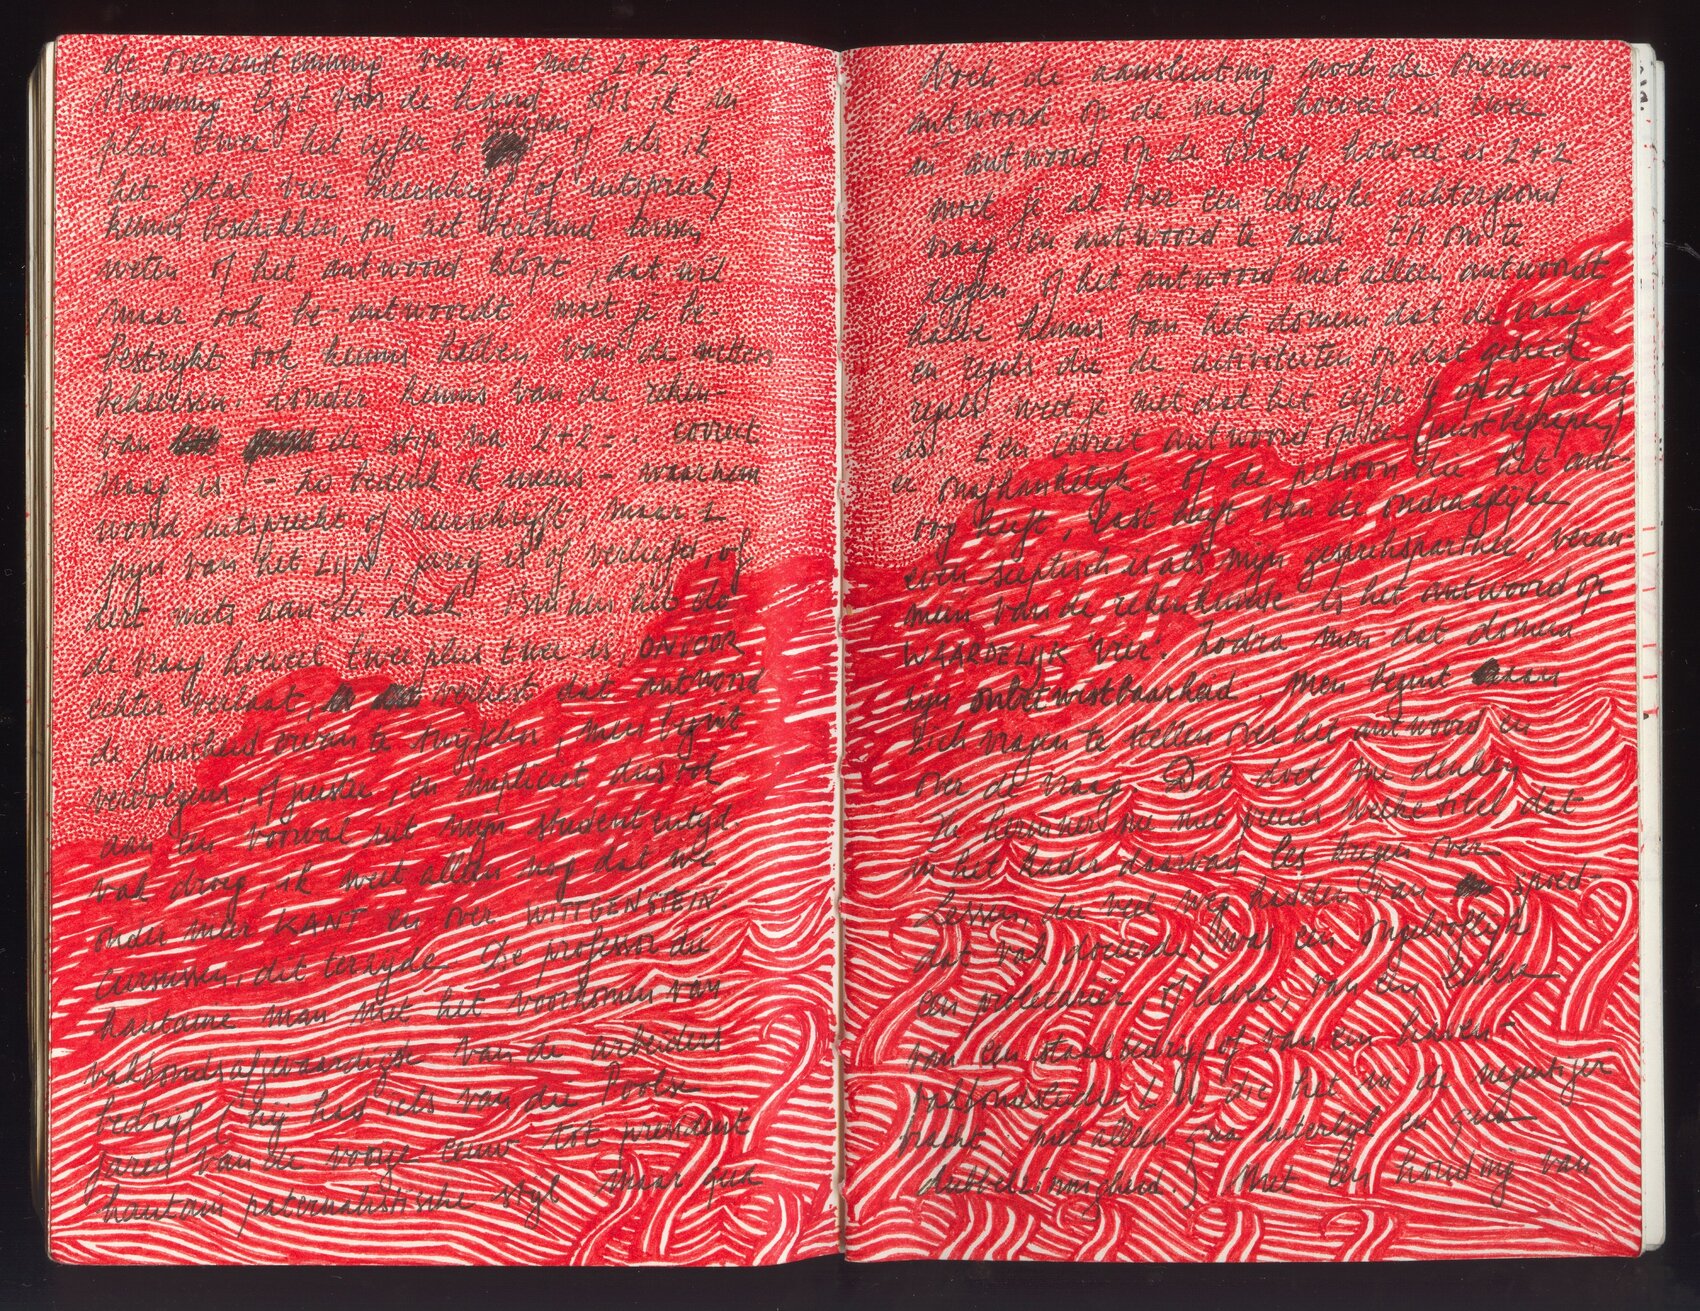 de overeenstemming van 4 met 2+2? Noch de aansluiting noch de overeen-
stemming ligt van de hand. Als ik in antwoord op de vraag hoeveel is twee
plus twee het cijfer 4 of als ik in antwoord op de vraag hoeveel is 2+2
het getal vier neerschrijf (of uitspreek) moet je al over een redelijke achtergrond
kennis beschikken, om het verband tussen vraag en antwoord te zien. En om te
weten of het antwoord klopt, dat wil zeggen of het antwoord niet alleen antwoordt
maar ook be-antwoordt moet je be- halve kennis van het domein dat de vraag
bestrijkt ook kennis hebben van de wetten en regels die de activiteiten op dat gebied
beheersen. Zonder kennis van de reken- regels weet je niet dat het cijfer 4 op de plaats
van de stip na 2+2 = . correct is. Een correct antwoord op een (juist begrepen)
vraag is - zo bedenk ik ineens - onafhankelijk. Of de persoon die het ant-
woord uitspreekt of neerschrijft, maar 1 oog heeft, last heeft van de ondraaglijke
pijn van het ZIJN, jarig is of verliefd, of even sceptisch is als mijn gesprekspartner, veran-
dert niets aan de zaak. Binnen het do mein van de rekenkunde is het antwoord op
de vraag hoeveel twee plus twee is, ONVOOR WAARDELIJK 'vier'. Zodra men dat domein
echter verlaat, verliest dat antwoord zijn onbetwistbaarheid. Men begint aan
de juistheid ervan te twijfelen, men begint zich vragen te stellen over het antwoord en
vervolgens, of juister, en impliciet dus ook over de vraag. Dat doet me denken
aan een voorval uit mijn studententijd. Ik herinner me niet precies welke titel dat
vak droeg, ik weet alleen nog dat we in het kader daarvan les kregen over
onder meer KANT en over WITTGENSTEIN. Lessen, die veel weg hadden van spoed-
cursussen, dit terzijde. De professor die dat vak doceerde, was een ongelooflijk
hautaine man met het voorkomen van een proletariër of liever, van een linkse
vakbondsafgevaardigde van de arbeiders van een staalbedrijf of van een haven-
bedrijf (hij had iets van die Poolse vakbondsleider L.W. die het in de negentiger
jaren van de vorige eeuw tot president bracht, niet alleen qua uiterlijk en qua
hautain paternalistische stijl maar qua dubbelzinnigheid.) Met een houding van